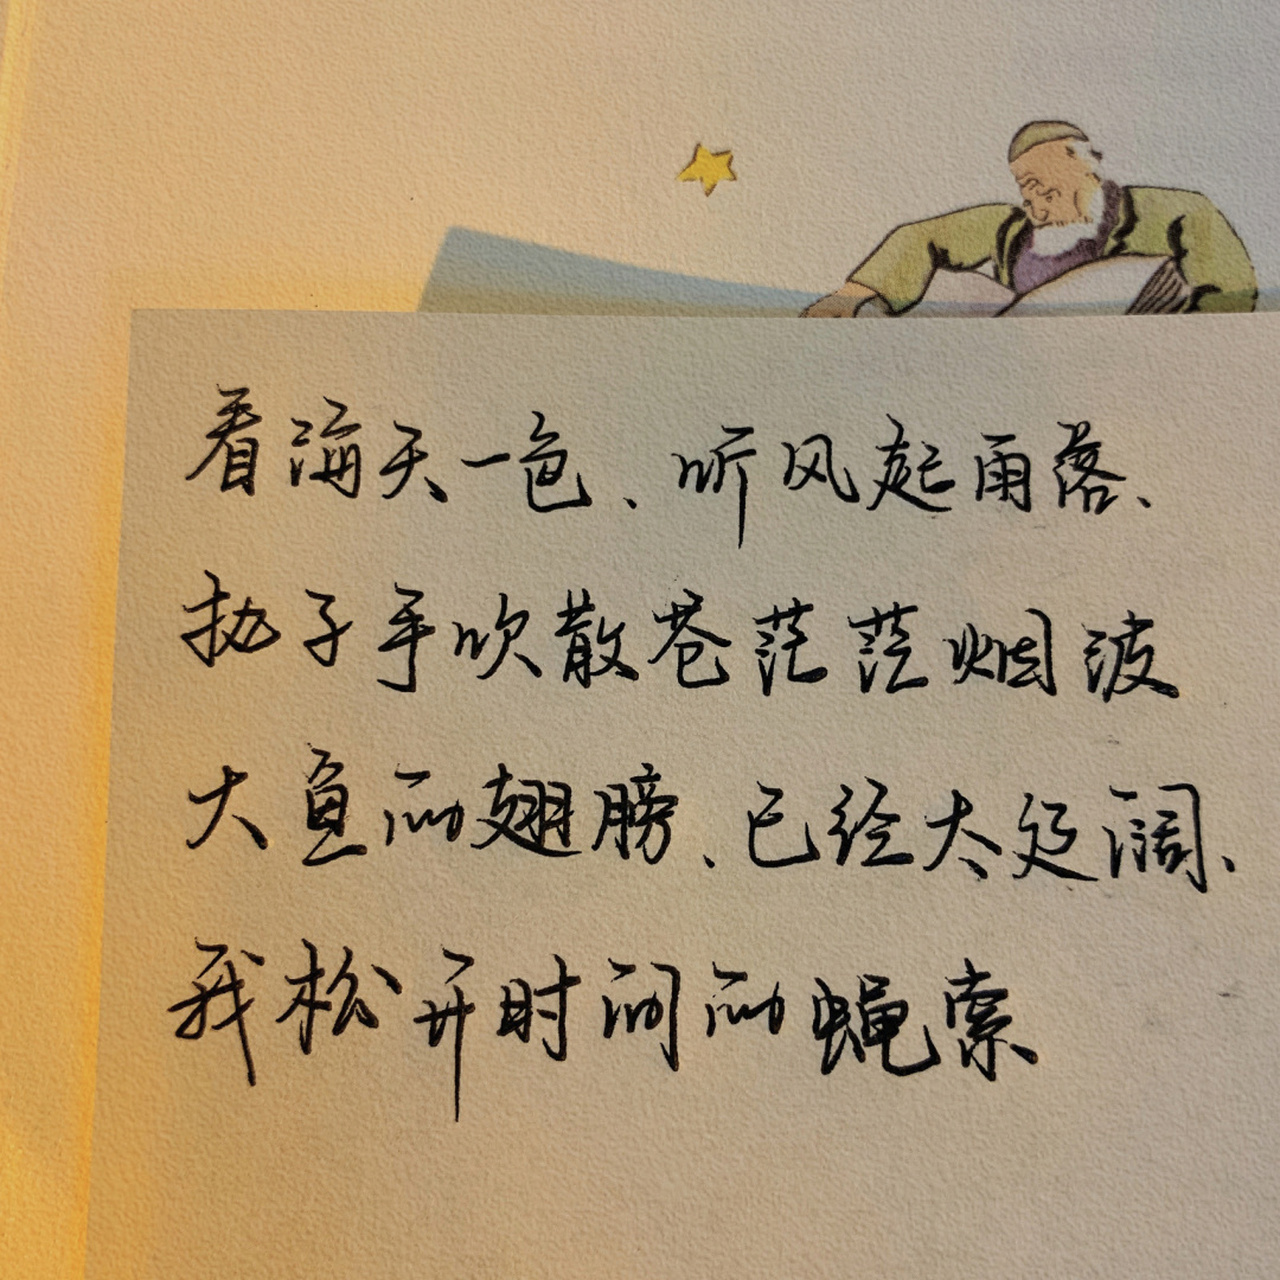 看海天一色、听风起雨落、
执子手吹散苍茫茫烟波
大鱼的翅膀、已经太辽阔、
我松开时间的蝇索